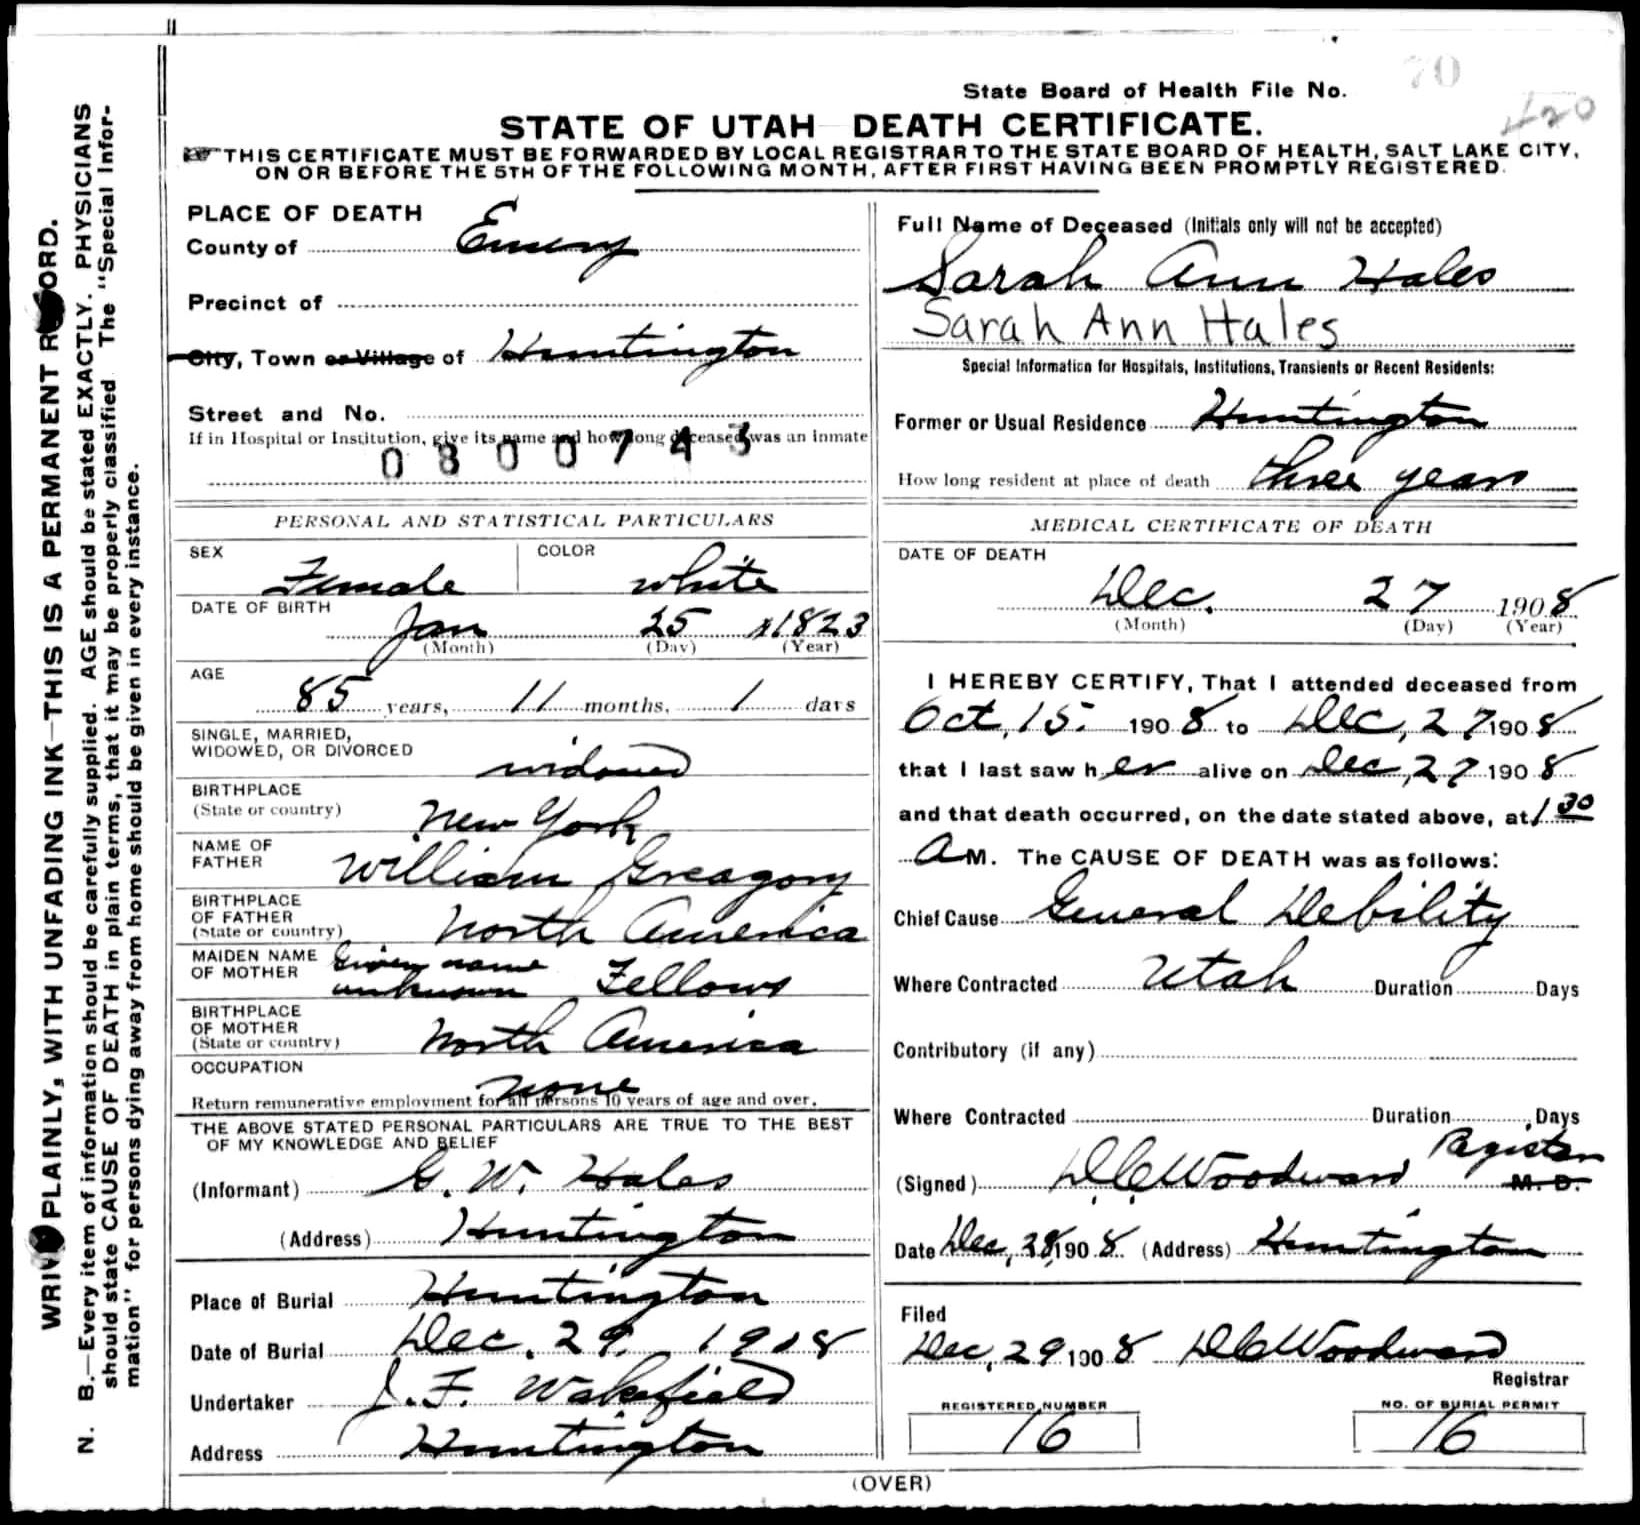 70
State Board of Health File No.
420
STATE OF UTAH DEATH CERTIFICATE.
THIS CERTIFICATE MUST BE FORWARDED BY LOCAL REGISTRAR TO THE STATE BOARD OF HEALTH, SALT LAKE CITY,
ON OR BEFORE THE 5TH OF THE FOLLOWING MONTH, AFTER FIRST HAVING BEEN PROMPTLY REGISTERED.
WRI PLAINLY, WITH UNFADING INK—THIS IS A PERMANENT R ORD.
N. B.—Every item of information should be carefully supplied. AGE should be stated EXACTLY. PHYSICIANS
should state CAUSE OF DEATH in plain terms, that it may be properly classified The "Special Infor-
mation" for persons dying away from home should be given in every instance.
PLACE OF DEATH
County of Emery
Precinct of
City, Town or Village of Huntington
Street and No.
If in Hospital or Institution, give its name and how long deceased was an inmate
0800743
PERSONAL AND STATISTICAL PARTICULARS
SEX Female COLOR white
DATE OF BIRTH
Jan 25 1823
(Month) (Day) (Year)
AGE
85 years, 11 months, 1 days
SINGLE, MARRIED,
WIDOWED, OR DIVORCED widowed
BIRTHPLACE
(State or country) New York
NAME OF
FATHER William Greagory
BIRTHPLACE
OF FATHER
(State or country) North America
MAIDEN NAME Given name
OF MOTHER unknown Fellows
BIRTHPLACE
OF MOTHER
(State or country) North America
OCCUPATION
None
Return remunerative employment for all persons 10 years of age and over.
THE ABOVE STATED PERSONAL PARTICULARS ARE TRUE TO THE BEST
OF MY KNOWLEDGE AND BELIEF
(Informant) G. W. Hales
(Address) Huntington
Place of Burial Huntington
Date of Burial Dec. 29, 1908
Undertaker J. F. Wakefield
Address Huntington
Full Name of Deceased (Initials only will not be accepted)
Sarah Ann Hales
Sarah Ann Hales
Special Information for Hospitals, Institutions, Transients or Recent Residents:
Former or Usual Residence Huntington
How long resident at place of death three years
MEDICAL CERTIFICATE OF DEATH
DATE OF DEATH
Dec. 27 1908
(Month) (Day) (Year)
I HEREBY CERTIFY, That I attended deceased from
Oct, 15. 1908 to Dec, 27 1908
that I last saw her alive on Dec, 27 1908
and that death occurred, on the date stated above, at 1 30
A M. The CAUSE OF DEATH was as follows:
Chief Cause General Debility
Where Contracted Utah Duration Days
Contributory (if any)
Where Contracted Duration Days
Register
(Signed) D. C. Woodward M. D.
Date Dec, 28, 1908 (Address) Huntington
Filed
Dec, 29 1908 D C Woodward
Registrar
REGISTERED NUMBER NO. OF BURIAL PERMIT
16 16
(OVER)